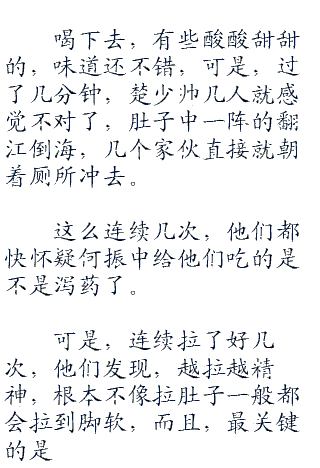 喝下去，有些酸酸甜甜
的，味道还不错，可是，过
了几分钟，楚少帅几人就感
觉不对了，肚子中一阵的翻
江倒海，几个家伙直接就朝
着厕所冲去。
这么连续几次，他们都
快怀疑何振中给他们吃的是
不是泻药了。
可是，连续拉了好几
次，他们发现，越拉越精
神，根本不像拉肚子一般都
会拉到脚软，而且，最关键
的是